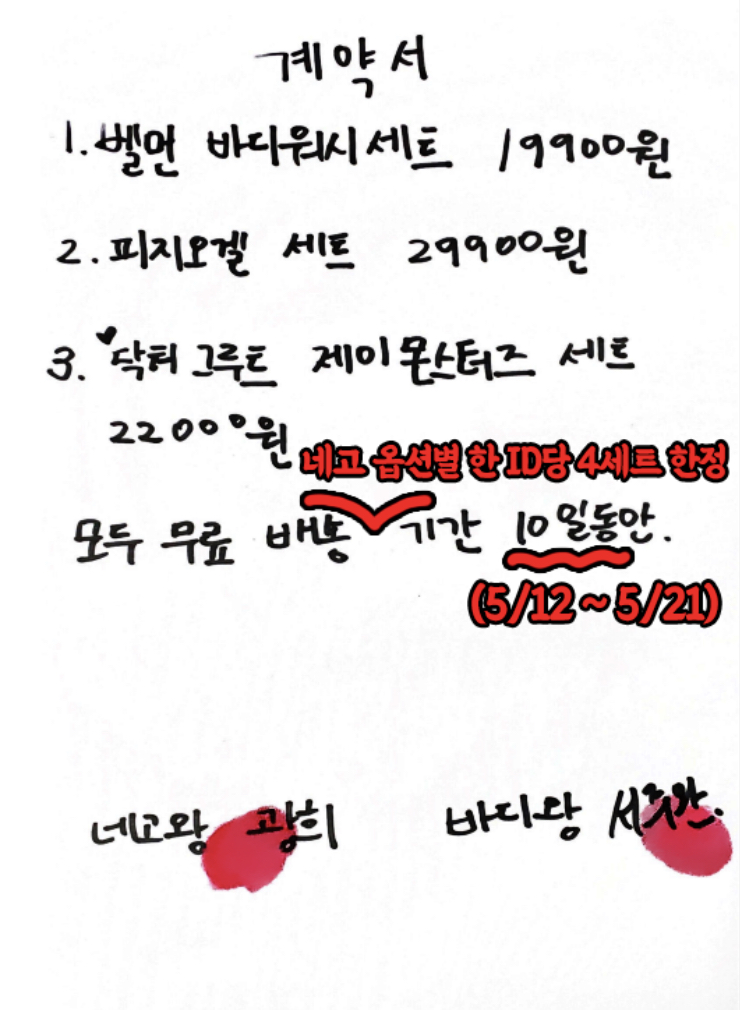 계약서
1. 벨먼 바디워시 세트 19900원
2. 피지오겔 세트 29900원
3. ♥닥터 그루트 제이몬스터즈 세트
22000원
네고 옵션별 한 ID당 4세트 한정
모두 무료 배송 기간 10일동안.
(5/12 ~ 5/21)
네고왕 광희 바디왕 서주완.